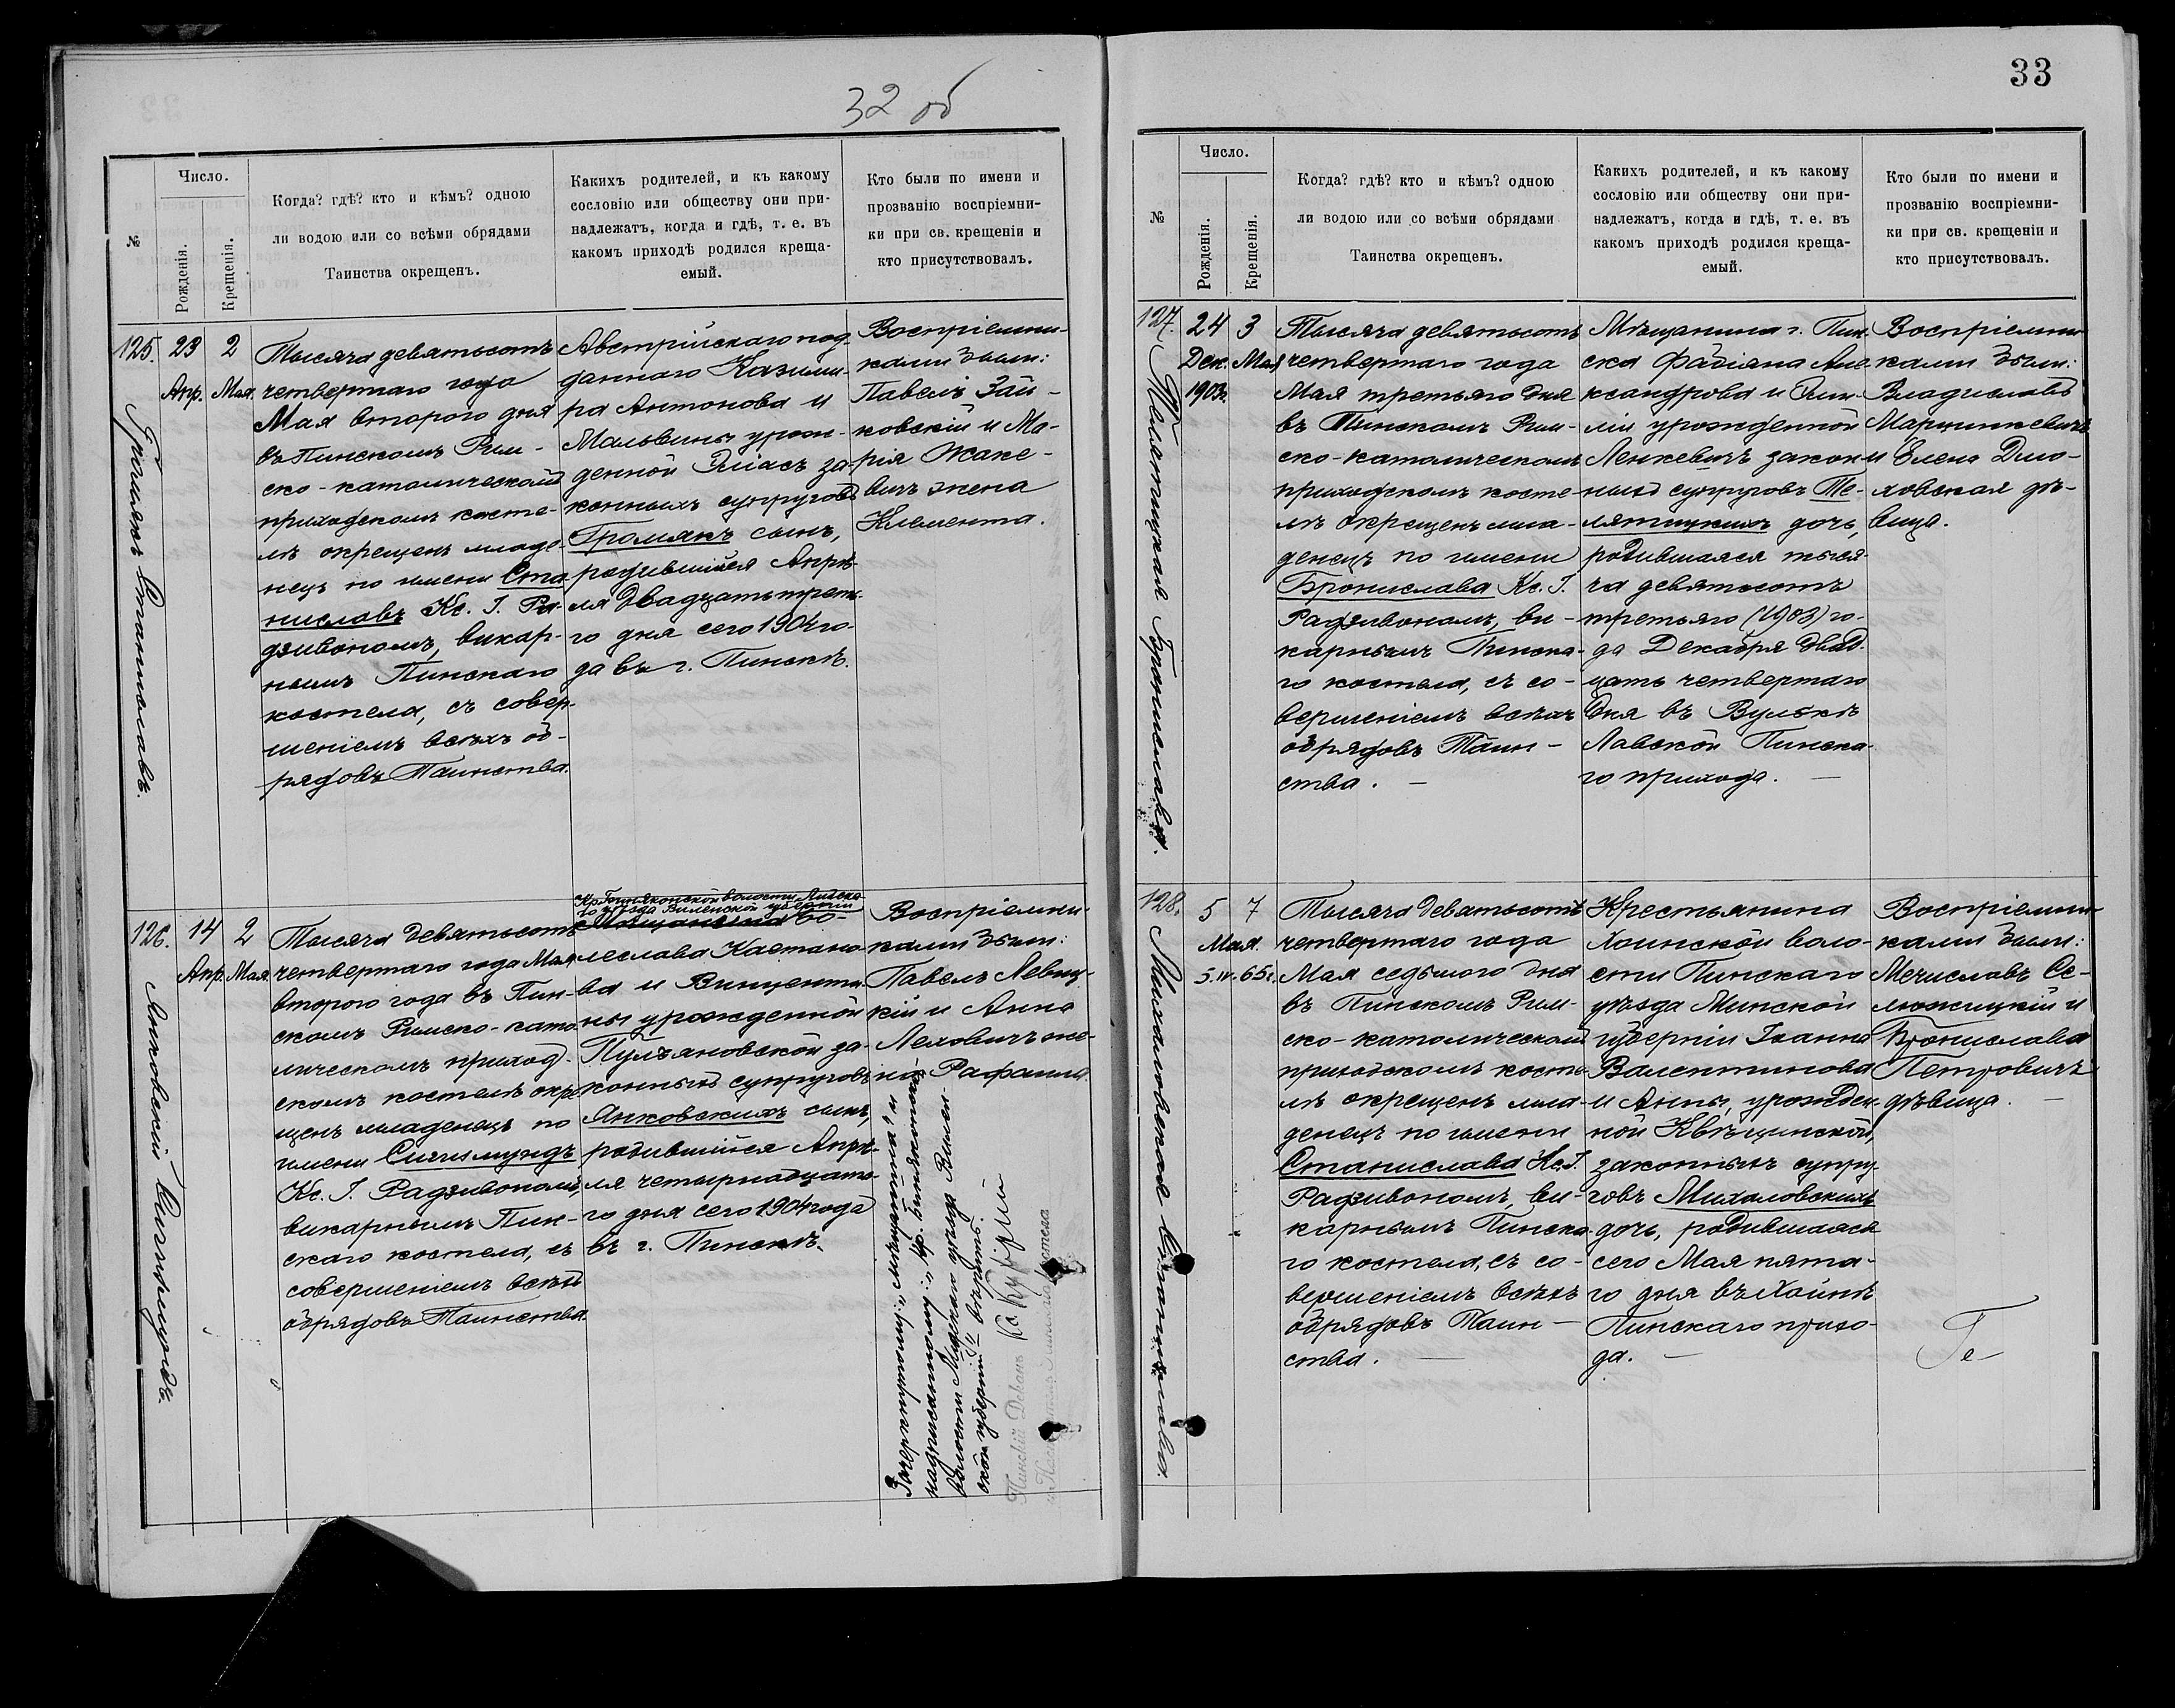 32 об
№
Число.
Рожденія.
Крещенія.
Когда? гдѣ? кто и кѣмъ? одною
ли водою или со всѣми обрядами
Таинства окрещенъ.
Какихъ родителей, и къ какому
сословію или обществу они при-
надлежатъ, когда и гдѣ, т. е. въ
какомъ приходѣ родился креща-
емый.
Кто были по имени и
прозванію воспріемни-
ки при св. крещеніи и
кто присутствовалъ.
125.
Громякъ Станиславъ.
23
Апр.
2
Мая.
Тысяча девятьсотъ
четвертаго года
Мая второго дня
въ Пинскомъ Рим-
ско-католическомъ
приходскомъ косте-
лѣ окрещенъ младе-
нецъ по имени Ста-
ниславъ Кс. I. Ра-
дзивономъ, викар-
нымъ Пинскаго
костела, съ совер-
шеніемъ всѣхъ об-
рядовъ Таинства.
Австрійскаго под-
даннаго Казими-
ра Антонова и
Мальвины урож-
денной Эліасъ за-
конныхъ супруговъ
Громякъ сынъ,
родившійся Апрѣ-
ля двадцать треть-
го дня сего 1904 го-
да въ г. Пинскѣ.
Воспріемни-
ками были:
Павелъ Зай-
ковскій и Ма-
рія Жаке-
вичъ жена
Климента.
126.
Янковскій Сигизмундъ.
14
Апр.
2
Мая
Тысяча девятьсотъ
четвертаго года Мая
второго года въ Пин-
скомъ Римско-като-
лическомъ приход-
скомъ костелѣ окре-
щенъ младенецъ по
имени Сигизмундъ
Кс. I. Радзивономъ,
викарнымъ Пин-
скаго костела, съ
совершеніемъ всѣхъ
обрядовъ Таинства.
волости Лидска-
го уѣзда Виленской губерніи
Мѣщанина Бо-
леслава Каетано-
ва и Винцента-
ны урожденной
Пульяновской за-
конныхъ супруговъ
Янковскихъ сынъ,
родившійся Апрѣ-
ля четырнадцата-
го дня сего 1904 года
въ г. Пинскѣ.
Воспріемни-
ками были:
Павелъ Левиц-
кій и Анна
Лехович же-
на Рафаила.
Зачеркнутому: „мѣщанина" и
надписанному: „кр.
волости Лидскаго уѣзда Вилен-
ской губерніи" вѣрить.
Пинскій Деканъ
33
№
Число.
Рожденія.
Крещенія.
Когда? гдѣ? кто и кѣмъ? одною
ли водою или со всѣми обрядами
Таинства окрещенъ.
Какихъ родителей, и къ какому
сословію или обществу они при-
надлежатъ, когда и гдѣ, т. е. въ
какомъ приходѣ родился креща-
емый.
Кто были по имени и
прозванію воспріемни-
ки при св. крещеніи и
кто присутствовалъ.
127.
Телятицкая Бронислава.
24
Дек.
1903г.
3
Мая
Тысяча девятьсотъ
четвертаго года
Мая третьяго дня
въ Пинскомъ Рим-
ско-католическомъ
приходскомъ косте-
лѣ окрещенъ мла-
денецъ по имени
Бронислава Кс. I.
Радзивономъ, ви-
карнымъ Пинска-
го костела, съ со-
вершеніемъ всѣхъ
обрядовъ Таин-
ства. —
Мѣщанина г. Пин-
ска Фабіана Але-
ксандрова и Эми-
ліи урожденной
Ленкевичъ закон-
ныхъ супруговъ Те-
лятицкихъ дочь,
родившаяся тыся-
ча девятьсотъ
третьяго (1903) го-
да Декабря двад-
цать четвертаго
дня въ Вулькѣ
Лавской Пинска-
го прихода. —
Воспріемни-
ками были:
Владиславъ
Марцинкевичъ
и Елена Дмо-
ховская дѣ-
вица.
128.
Михаловская Станислава.
5
7
Мая.
5.IV.65г.
Тысяча девятьсотъ
четвертаго года
Мая седьмого дня
въ Пинскомъ Рим-
ско-католическомъ
приходскомъ косте-
лѣ окрещенъ мла-
денецъ по имени
Станислава Кс. I.
Радзивономъ, ви-
карнымъ Пинска-
го костела, съ со-
вершеніемъ всѣхъ
обрядовъ Таин-
ства. —
Крестьянина
Хоинской воло-
сти Пинскаго
уѣзда Минской
губерніи Іоанна
Валентинова
и Анны, урожден-
ной Квѣцинской,
законныхъ супру-
говъ Михаловскихъ
дочь, родившаяся
сего Мая пята-
го дня въ Хойнѣ
Пинскаго прихо-
да. —
Воспріемни-
ками были:
Мечиславъ Се-
люжицкій и
Бронислава
Петровичъ
дѣвица. —